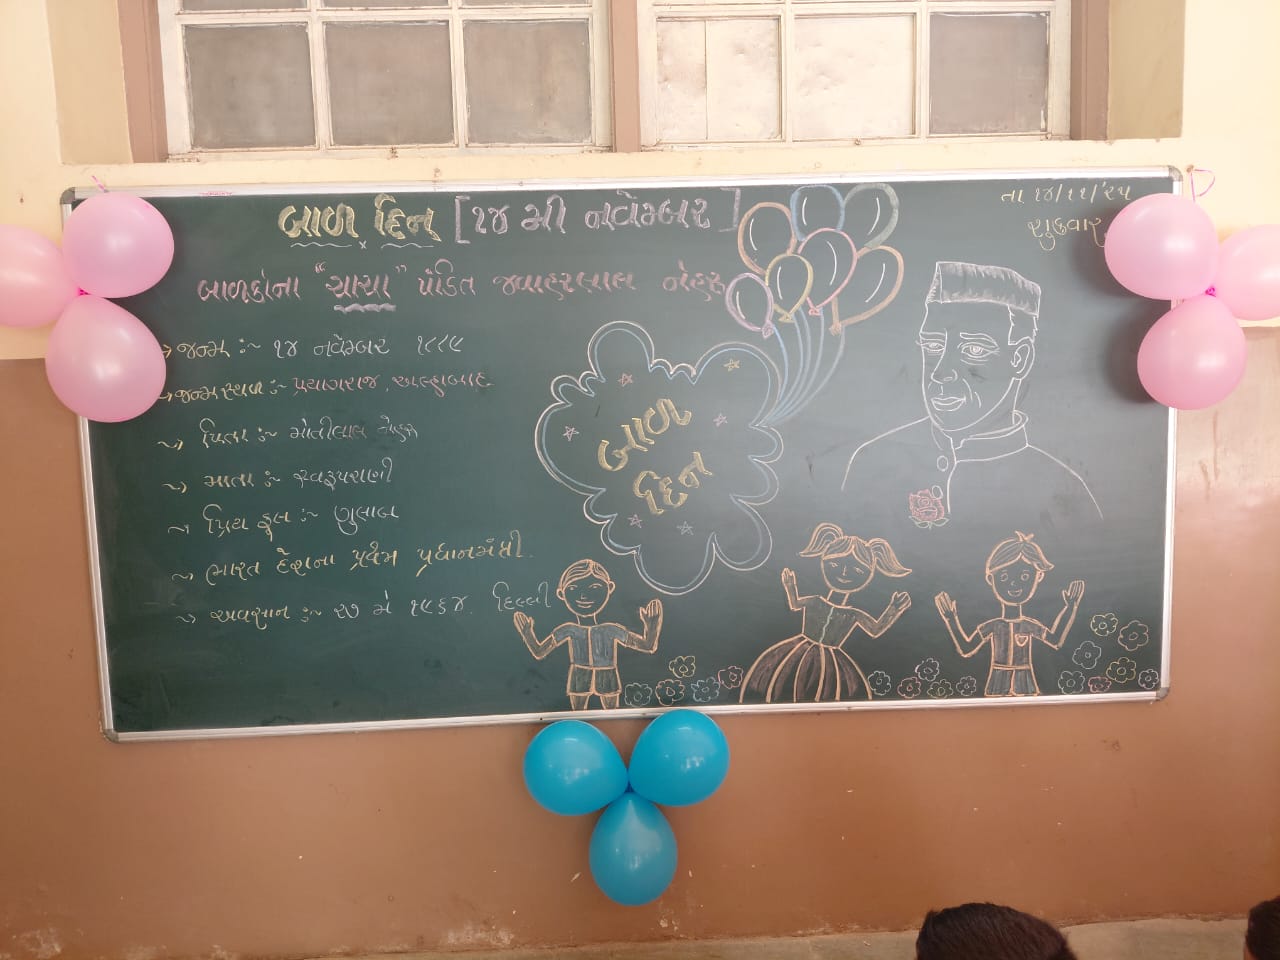 બાળ દિન [૧૪ મી નવેમ્બર]
તા ૧૪/૧૧/'૨૫
શુક્રવાર
બાળકોના "ચાચા" પંડિત જવાહરલાલ નેહરુ
→ જન્મ :~ ૧૪ નવેમ્બર ૧૮૮૯
→ જન્મસ્થળ :~ પ્રયાગરાજ, અલ્હાબાદ
~> પિતા :~ મોતીલાલ નેહરુ
~> માતા :~ સ્વરૂપરાણી
~> પ્રિય ફૂલ :~ ગુલાબ
~> ભારત દેશના પ્રથમ પ્રધાનમંત્રી.
~> અવસાન :~ ૨૭ મે ૧૯૬૪. દિલ્લી
બાળ
દિન